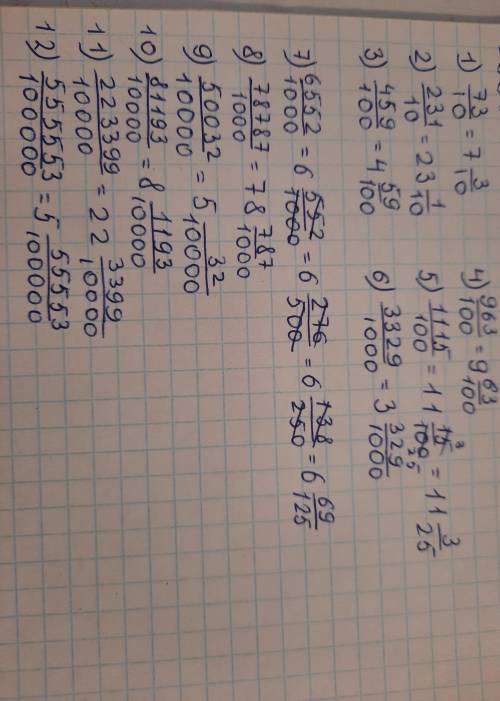 1) 73/10 = 7 3/10 4) 963/100 = 9 63/100
2) 231/10 = 23 1/10 5) 1115/100 = 11 15/100 = 11 3/25
3) 459/100 = 4 59/100 6) 3329/1000 = 3 329/1000
7) 6552/1000 = 6 552/1000 = 6 276/500 = 6 138/250 = 6 69/125
8) 78787/1000 = 78 787/1000
9) 50032/10000 = 5 32/10000
10) 81193/10000 = 8 1193/10000
11) 223399/10000 = 22 3399/10000
12) 555553/100000 = 5 55553/100000